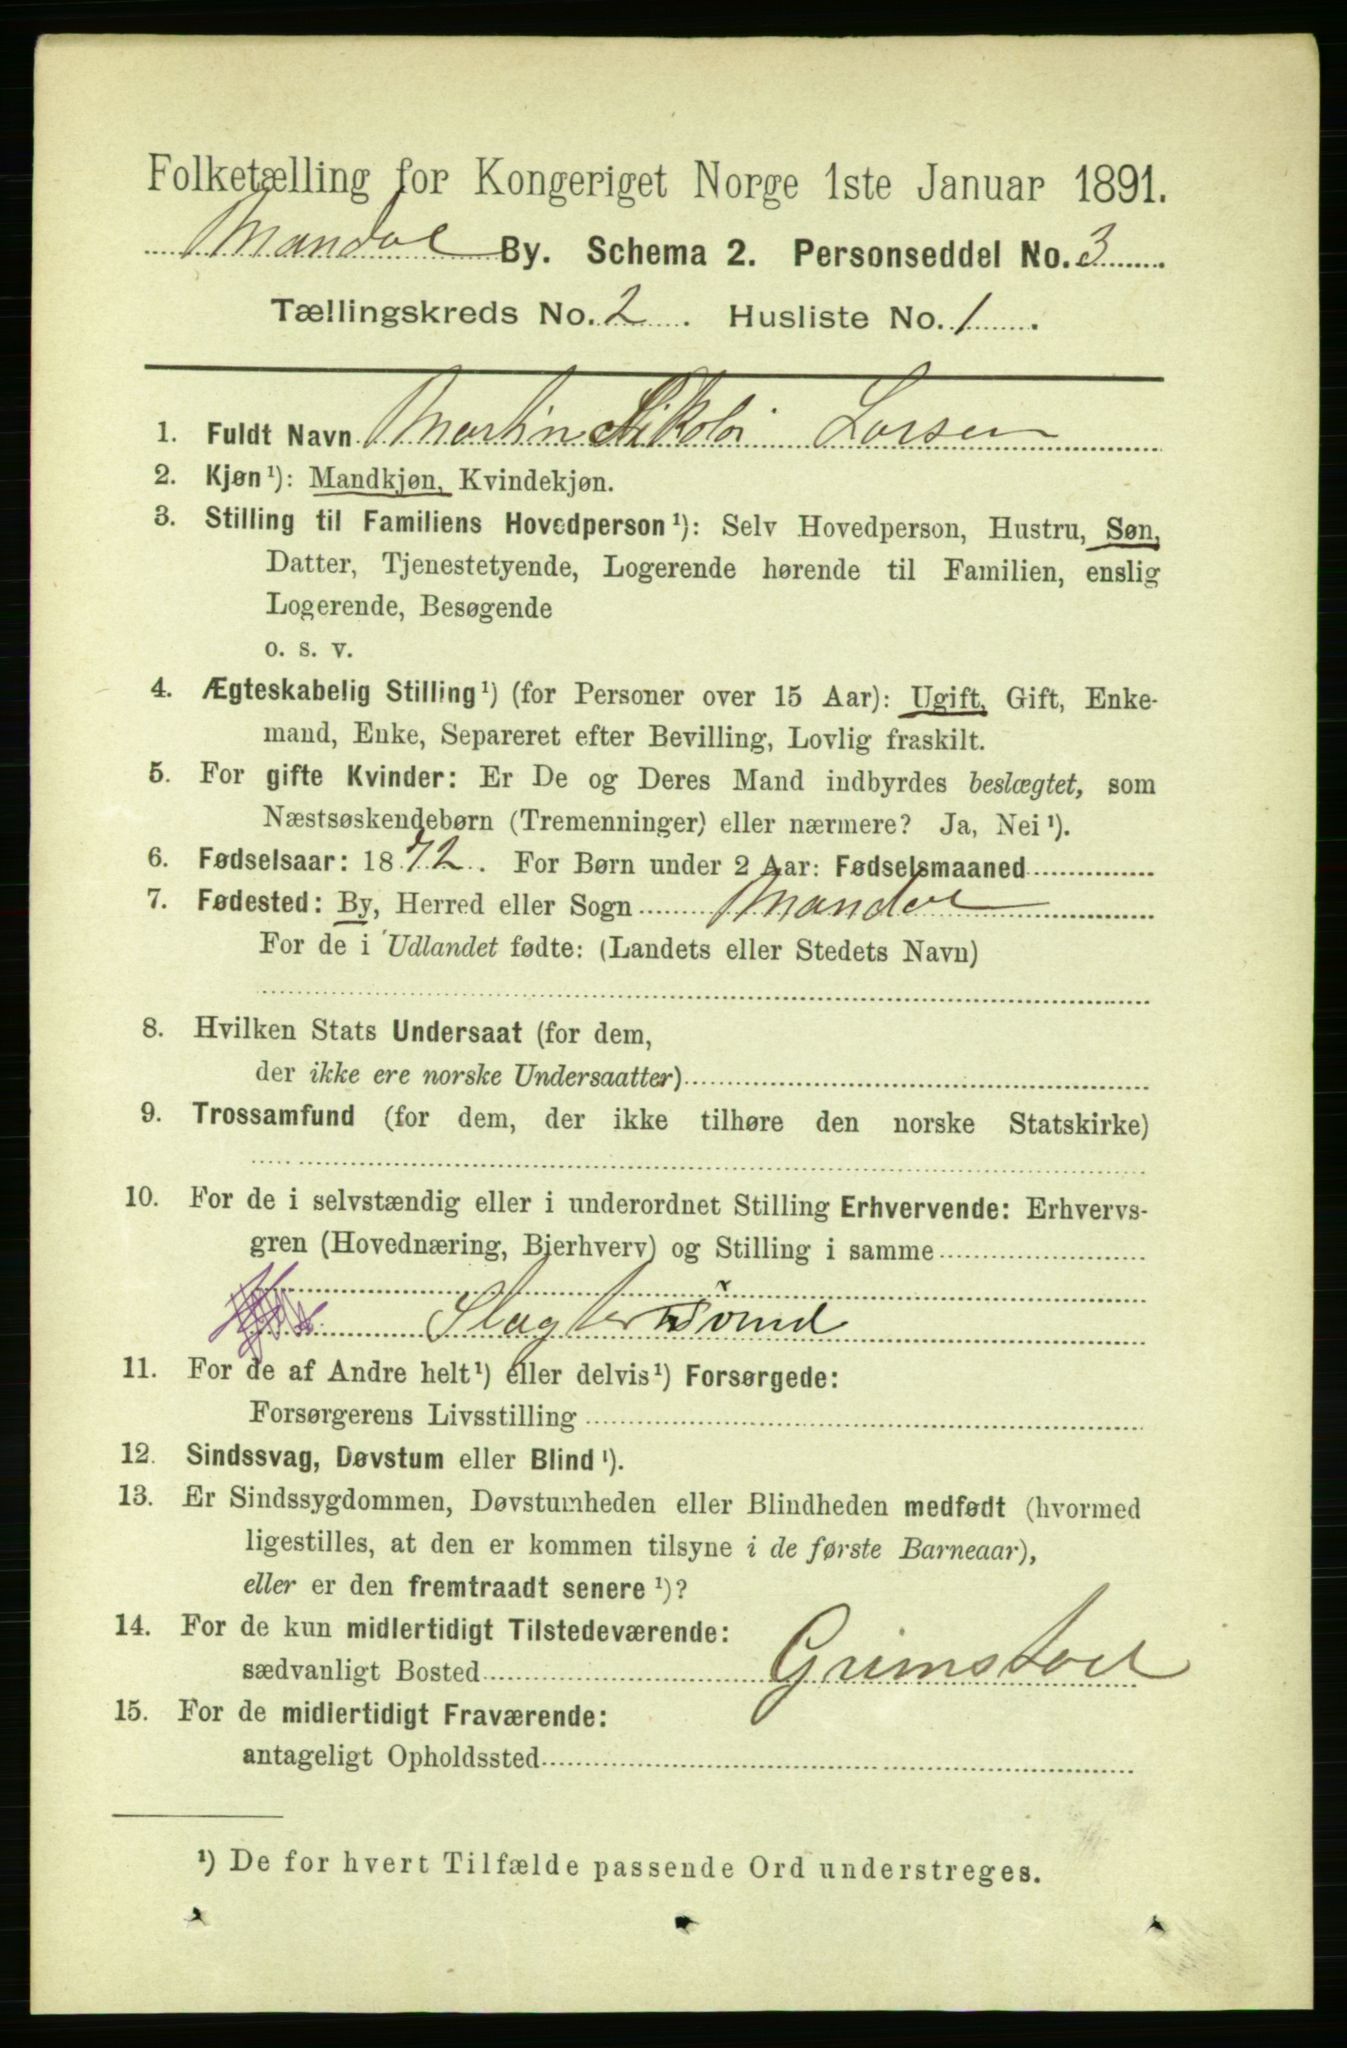 Folketælling for Kongeriget Norge 1ste Januar 1891.
Mandal By. Schema 2. Personseddel No. 3
Tællingskreds No. 2. Husliste No. 1.
1. Fuldt Navn Martin Nikolai Larsen
2. Kjøn¹): Mandkjøn, Kvindekjøn.
3. Stilling til Familiens Hovedperson¹): Selv Hovedperson, Hustru, Søn,
Datter, Tjenestetyende, Logerende hørende til Familien, enslig
Logerende, Besøgende
o. s. v.
4. Ægteskabelig Stilling¹) (for Personer over 15 Aar): Ugift, Gift, Enke-
mand, Enke, Separeret efter Bevilling, Lovlig fraskilt.
5. For gifte Kvinder: Er De og Deres Mand indbyrdes beslægtet, som
Næstsøskendebørn (Tremenninger) eller nærmere? Ja, Nei¹).
6. Fødselsaar: 1872. For Børn under 2 Aar: Fødselsmaaned
7. Fødested: By, Herred eller Sogn Mandal
For de i Udlandet fødte: (Landets eller Stedets Navn)
8. Hvilken Stats Undersaat (for dem,
der ikke ere norske Undersaatter)
9. Trossamfund (for dem, der ikke tilhøre den norske Statskirke)
10. For de i selvstændig eller i underordnet Stilling Erhvervende: Erhvervs-
gren (Hovednæring, Bierhverv) og Stilling i samme
Slagtersvend
11. For de af Andre helt¹) eller delvis¹) Forsørgede:
Forsørgerens Livsstilling
12. Sindssvag, Døvstum eller Blind¹).
13. Er Sindssygdommen, Døvstumheden eller Blindheden medfødt (hvormed
ligestilles, at den er kommen tilsyne i de første Barneaar),
eller er den fremtraadt senere¹)?
14. For de kun midlertidigt Tilstedeværende:
sædvanligt Bosted Grimstad
15. For de midlertidigt Fraværende:
antageligt Opholdssted
¹) De for hvert Tilfælde passende Ord understreges.